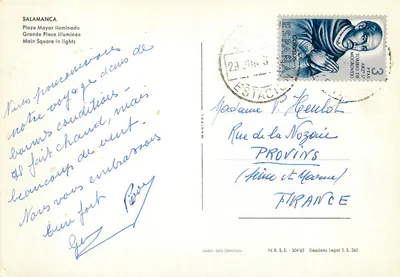 SALAMANCA
Plaza Mayor iluminado
Grande Place illuminee
Main Square in lights
Nous poursuivons
notre voyage dans de
bonnes conditions _
Il fait chaud, mais
beaucoup de vent.
Nous vous embrassons
bien fort
ESPAÑA
3
PTAS
Madame P. Heulot
Rue de la Nozaie
PROVINS
(Seine et Marne)
FRANCE
N. R. S. S. - 304/65 Deposito Legal S. S. 265